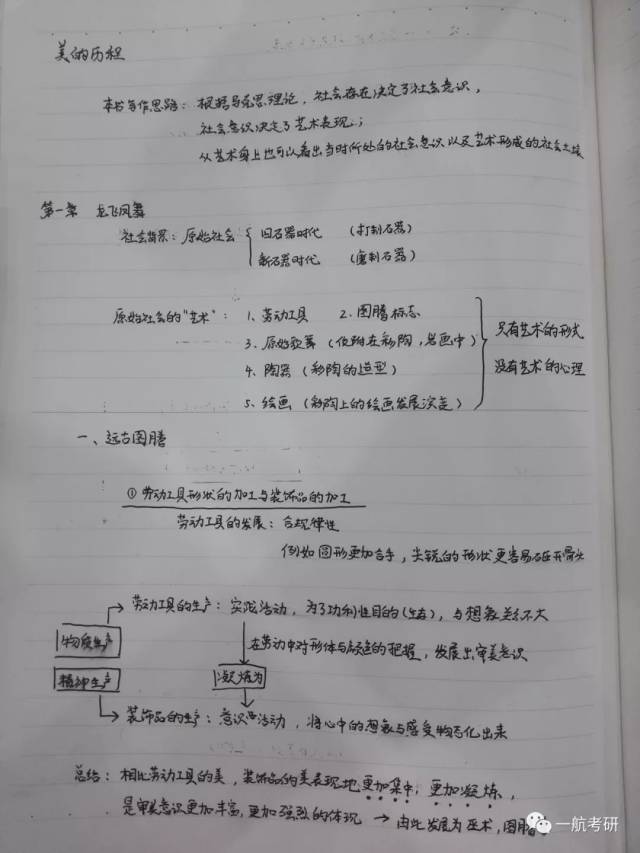 美的历程
本书写作思路：根据马克思理论，社会存在决定了社会意识，
社会意识决定了艺术表现；
从艺术身上也可以看出当时所处的社会意识以及艺术形成的社会土壤
第一章 龙飞凤舞
社会背景：原始社会 旧石器时代 （打制石器）
新石器时代 （磨制石器）
原始社会的"艺术"： 1、劳动工具 2、图腾标志
3、原始歌舞（依附在彩陶，岩画中） 只有艺术的形式
4、陶器（彩陶的造型） 没有艺术的心理
5、绘画（彩陶上的绘画发展演变）
一、远古图腾
①劳动工具形状的加工与装饰品的加工
劳动工具的发展：合规律性
例如圆形更加合手，尖锐的形状更容易砸开骨头
劳动工具的生产：实践活动，为了功利性目的（生存），与想象关系不大
物质生产 在劳动中对形体与颜色的把握，发展出审美意识
精神生产 凝炼为
装饰品的生产：意识活动，将心中的想象与感受物态化出来
总结：相比劳动工具的美，装饰品的美表现地更加集中，更加凝炼，
是审美意识更加丰富，更加强烈的体现 → 由此发展为巫术，图腾
一航考研